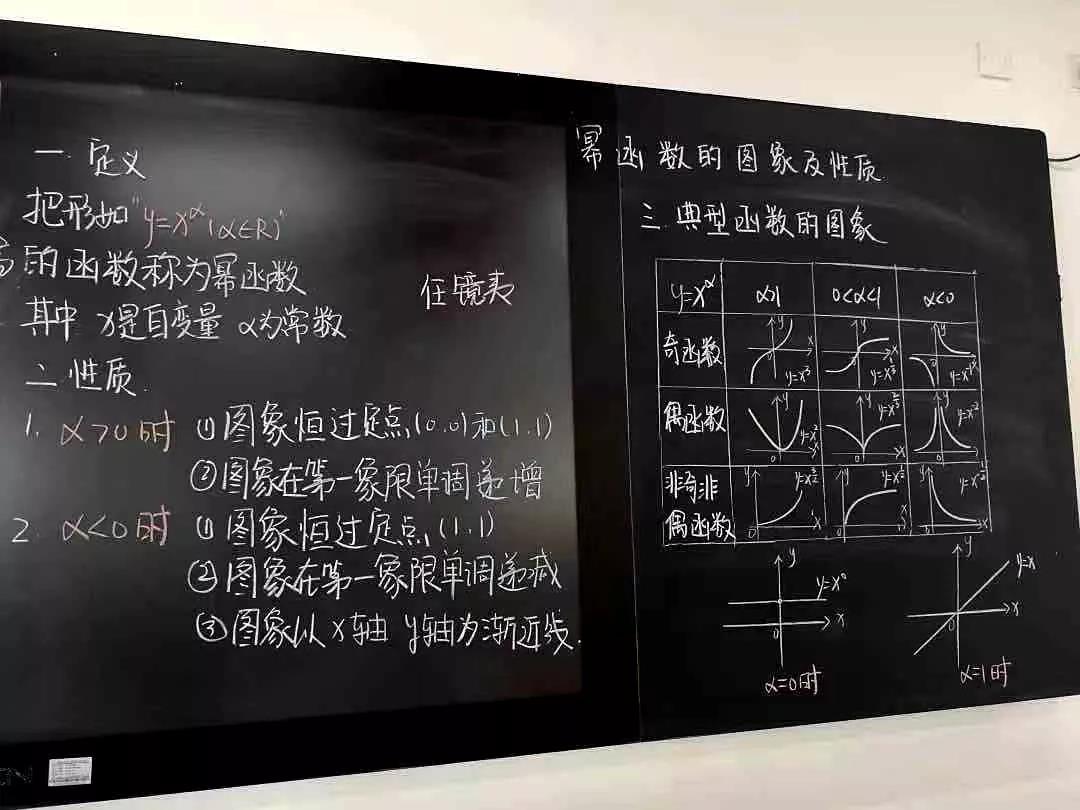 幂函数的图象及性质
一.定义
把形如"y=x^α(α∈R)"
的函数称为幂函数
其中 x是自变量 α为常数
二.性质.
1. α>0时 ①图象恒过定点(0,0)和(1,1)
②图象在第一象限单调递增
2. α<0时 ①图象恒过定点(1,1)
②图象在第一象限单调递减
③图象以x轴 y轴为渐近线.
任镜夷
三.典型函数的图象
y=x^α α>1 0<α<1 α<0
奇函数 y x 0 y=x^3 y x 0 y=x^{1/3} y x 0 y=x^{-1}
偶函数 y x 0 y=x^2 y x 0 y=x^{2/3} y x 0 y=x^{-2}
非奇非偶函数 y x 0 y=x^{3/2} y x 0 y=x^{1/2} y x 0 y=x^{-1/2}
y y=x^0 x 0
α=0时
y y=x x 0
α=1时